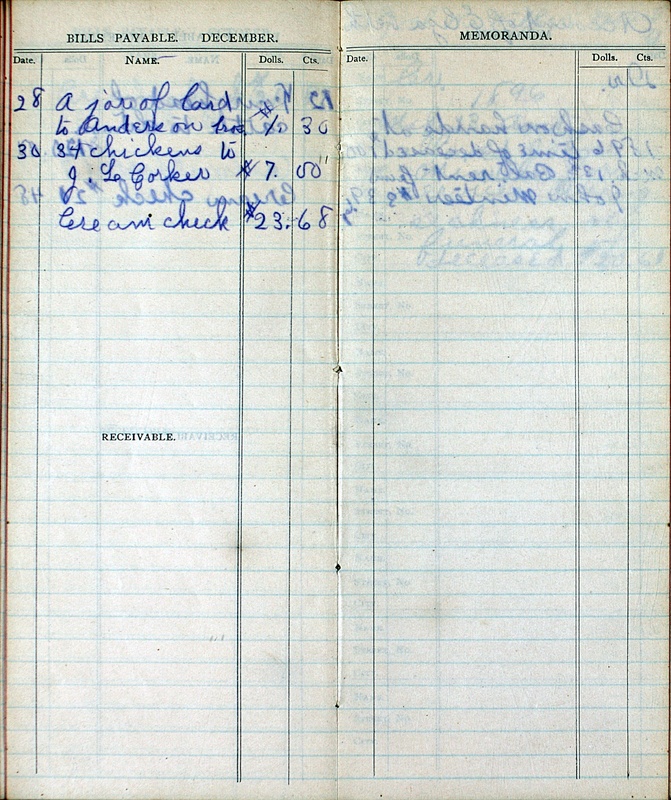 BILLS PAYABLE. DECEMBER.
Date. NAME. Dolls. Cts.
28 A jar of lard
to Anderson bros $1. 30
30 34 chickens to
J. L. Corker $7. 00
Cream check $23. 68
RECEIVABLE.
MEMORANDA.
Date. Dolls. Cts.